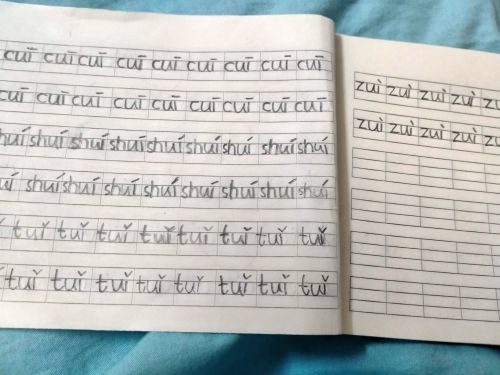 cuī cuī cuī cuī cuī cuī cuī cuī cuī
cuī cuī cuī cuī cuī cuī cuī cuī cuī
shuí shuí shuí shuí shuí shuí shuí shuí
shuí shuí shuí shuí shuí shuí shuí shuí
tuǐ tuǐ tuǐ tuǐ tuǐ tuǐ tuǐ tuǐ
tuǐ tuǐ tuǐ tuǐ tuǐ tuǐ tuǐ tuǐ
zuì zuì zuì zuì
zuì zuì zuì zuì